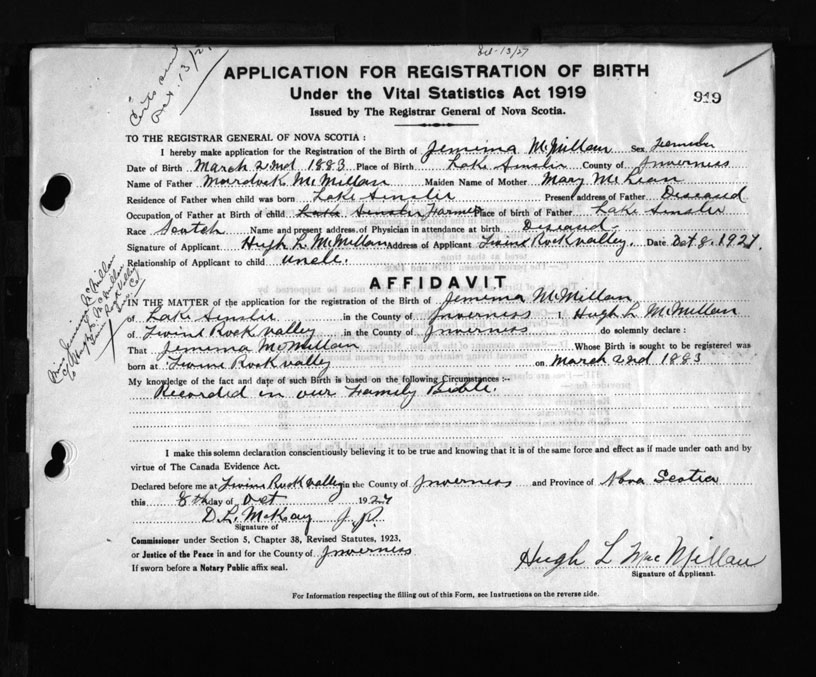 Oct. 13/27
Oct. 13/27
APPLICATION FOR REGISTRATION OF BIRTH
Under the Vital Statistics Act 1919
919
Issued by The Registrar General of Nova Scotia.
TO THE REGISTRAR GENERAL OF NOVA SCOTIA :
I hereby make application for the Registration of the Birth of Jemima McMillan Sex Female
Date of Birth March 2nd 1883 Place of Birth Lake Ainslie County of Inverness
Name of Father Murdock McMillan Maiden Name of Mother Mary McLean
Residence of Father when child was born Lake Ainslie Present address of Father Deceased
Occupation of Father at Birth of child Lake Ainslie Farmer Place of birth of Father Lake Ainslie
Race Scotch Name and present address of Physician in attendance at birth Deceased
Signature of Applicant Hugh L McMillan Address of Applicant Twine Rock valley. Date Oct 8. 1927.
Relationship of Applicant to child uncle.
AFFIDAVIT
IN THE MATTER of the application for the registration of the Birth of Jemima McMillan
of Lake Ainslie in the County of Inverness I, Hugh L McMillan
of Twine Rock valley in the County of Inverness do solemnly declare :
That Jemima McMillan Whose Birth is sought to be registered was
born at Twine Rock valley on March 2nd 1883
My knowledge of the fact and date of such Birth is based on the following Circumstances :-
Recorded in our Family Bible.
I make this solemn declaration conscientiously believing it to be true and knowing that it is of the same force and effect as if made under oath and by
virtue of The Canada Evidence Act.
Declared before me at Twine Rock valley in the County of Inverness and Province of Nova Scotia
this 8th day of Oct 1927
D. L. McKay J. P.
Signature of
Commissioner under Section 5, Chapter 38, Revised Statutes, 1923,
or Justice of the Peace in and for the County of Inverness
If sworn before a Notary Public affix seal.
Hugh L Mac Millan
Signature of Applicant.
For Information respecting the filling out of this Form, see Instructions on the reverse side.